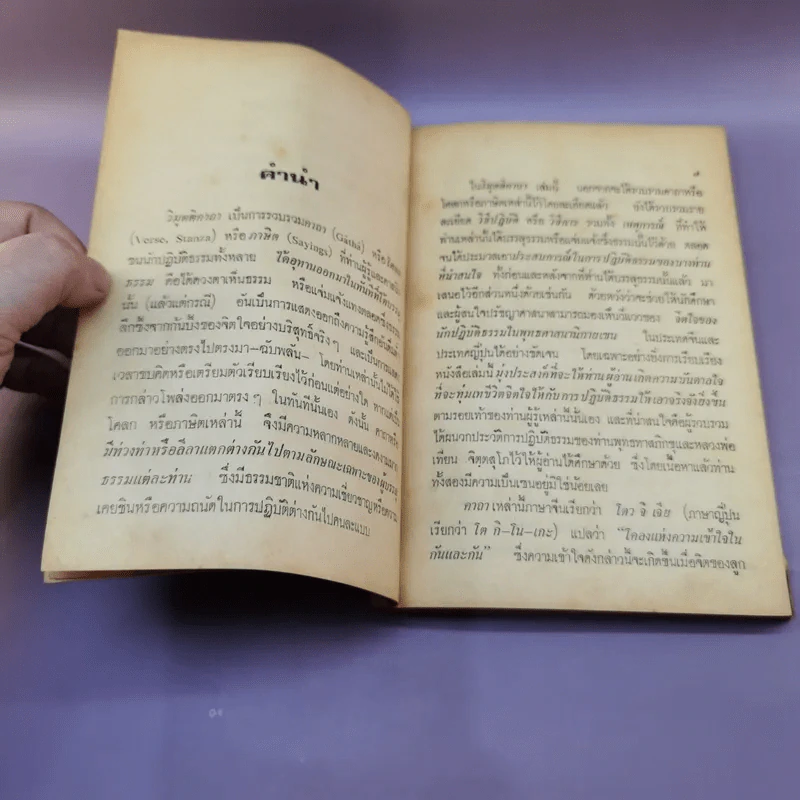 คำนำ
วิมุตติคาถา เป็นการรวบรวมคาถา (Gāthā) หรือ โศลก
(Verse, Stanza) หรือ ภาษิต (Sayings) ที่ท่านผู้รู้และ
ขนนักปฏิบัติธรรมทั้งหลาย ได้อุทานออกมาในทันทีที่
ธรรม คือได้ดวงตาเห็นธรรม หรือแจ่มแจ้งแทงตลอดซึ่งธรรม
นั้น (แล้วแต่กรณี) อันเป็นการแสดงออกถึงความรู้สึกอัน
ลึกซึ้งจากก้นบึ้งของจิตใจอย่างบริสุทธิ์จริงๆ และเป็นการ
ออกมาอย่างตรงไปตรงมา–ฉับพลัน– โดยท่านเหล่านั้นไม่ได้ใช้
เวลาขบคิดหรือเตรียมตัวเรียบเรียงไว้ก่อนแต่อย่างใด หากแต่เป็น
การกล่าวโพล่งออกมาตรงๆ ในทันทีนั้นเอง ดังนั้น คาถาหรือ
โศลก หรือภาษิตเหล่านี้ จึงมีความหลากหลายและงดงาม
มีท่วงท่าหรือลีลาแตกต่างกันไปตามลักษณะเฉพาะของผู้
ธรรมแต่ละท่าน ซึ่งมีธรรมชาติแห่งความเชี่ยวชาญหรือความ
เคยชินหรือความถนัดในการปฏิบัติต่างกันไปคนละแบบ
ในวิมุตติคาถา เล่มนี้ นอกจากจะได้รวบรวมคาถาหรือ
โศลกหรือภาษิตเหล่านี้ไว้โดยละเอียดแล้ว ยังได้รวบรวมราย
ละเอียด วิธีปฏิบัติ หรือ วิธีการ รวมทั้ง เหตุการณ์ ที่ทำให้
ท่านเหล่านั้นได้บรรลุธรรมหรือแจ่มแจ้งซึ่งธรรมนั้นไว้ด้วย ตลอด
จนได้ประมวลเอาประสบการณ์ในการปฏิบัติธรรมของบางท่าน
ที่น่าสนใจ ทั้งก่อนและหลังจากที่ท่านได้บรรลุธรรมนั้นแล้ว มา
เสนอไว้อีกส่วนหนึ่งด้วยเช่นกัน ด้วยหวังว่าจะช่วยให้นักศึกษา
และผู้สนใจปรัชญาศาสนาสามารถมองเห็นวี่แววของ จิตใจของ
นักปฏิบัติธรรมในพุทธศาสนานิกายเซน ในประเทศจีนและ
ประเทศญี่ปุ่นได้อย่างชัดเจน โดยเฉพาะอย่างยิ่งการเรียบเรียง
หนังสือเล่มนี้ มุ่งประสงค์ที่จะให้ท่านผู้อ่านเกิดความบันดาลใจ
ที่จะทุ่มเทชีวิตจิตใจให้กับการปฏิบัติธรรมให้เอาจริงจังยิ่งขึ้น
ตามรอยเท้าของท่านผู้รู้เหล่านั้นเอง และที่น่าสนใจคือผู้รวบรวม
ได้ผนวกประวัติการปฏิบัติธรรมของท่านพุทธทาสภิกขุและหลวงพ่อ
เทียน จิตฺตสุโภไว้ให้ผู้อ่านได้ศึกษาด้วย ซึ่งโดยเนื้อหาแล้วท่าน
ทั้งสองมีความเป็นเซนอยู่มิใช่น้อยเลย
คาถา เหล่านี้ภาษาจีนเรียกว่า โตว จิ เจีย (ภาษาญี่ปุ่น
เรียกว่า โต กิ–โน–เกะ) แปลว่า “โคลงแห่งความเข้าใจใน
กันและกัน” ซึ่งความเข้าใจดังกล่าวนี้จะเกิดขึ้นเมื่อจิตของลูก